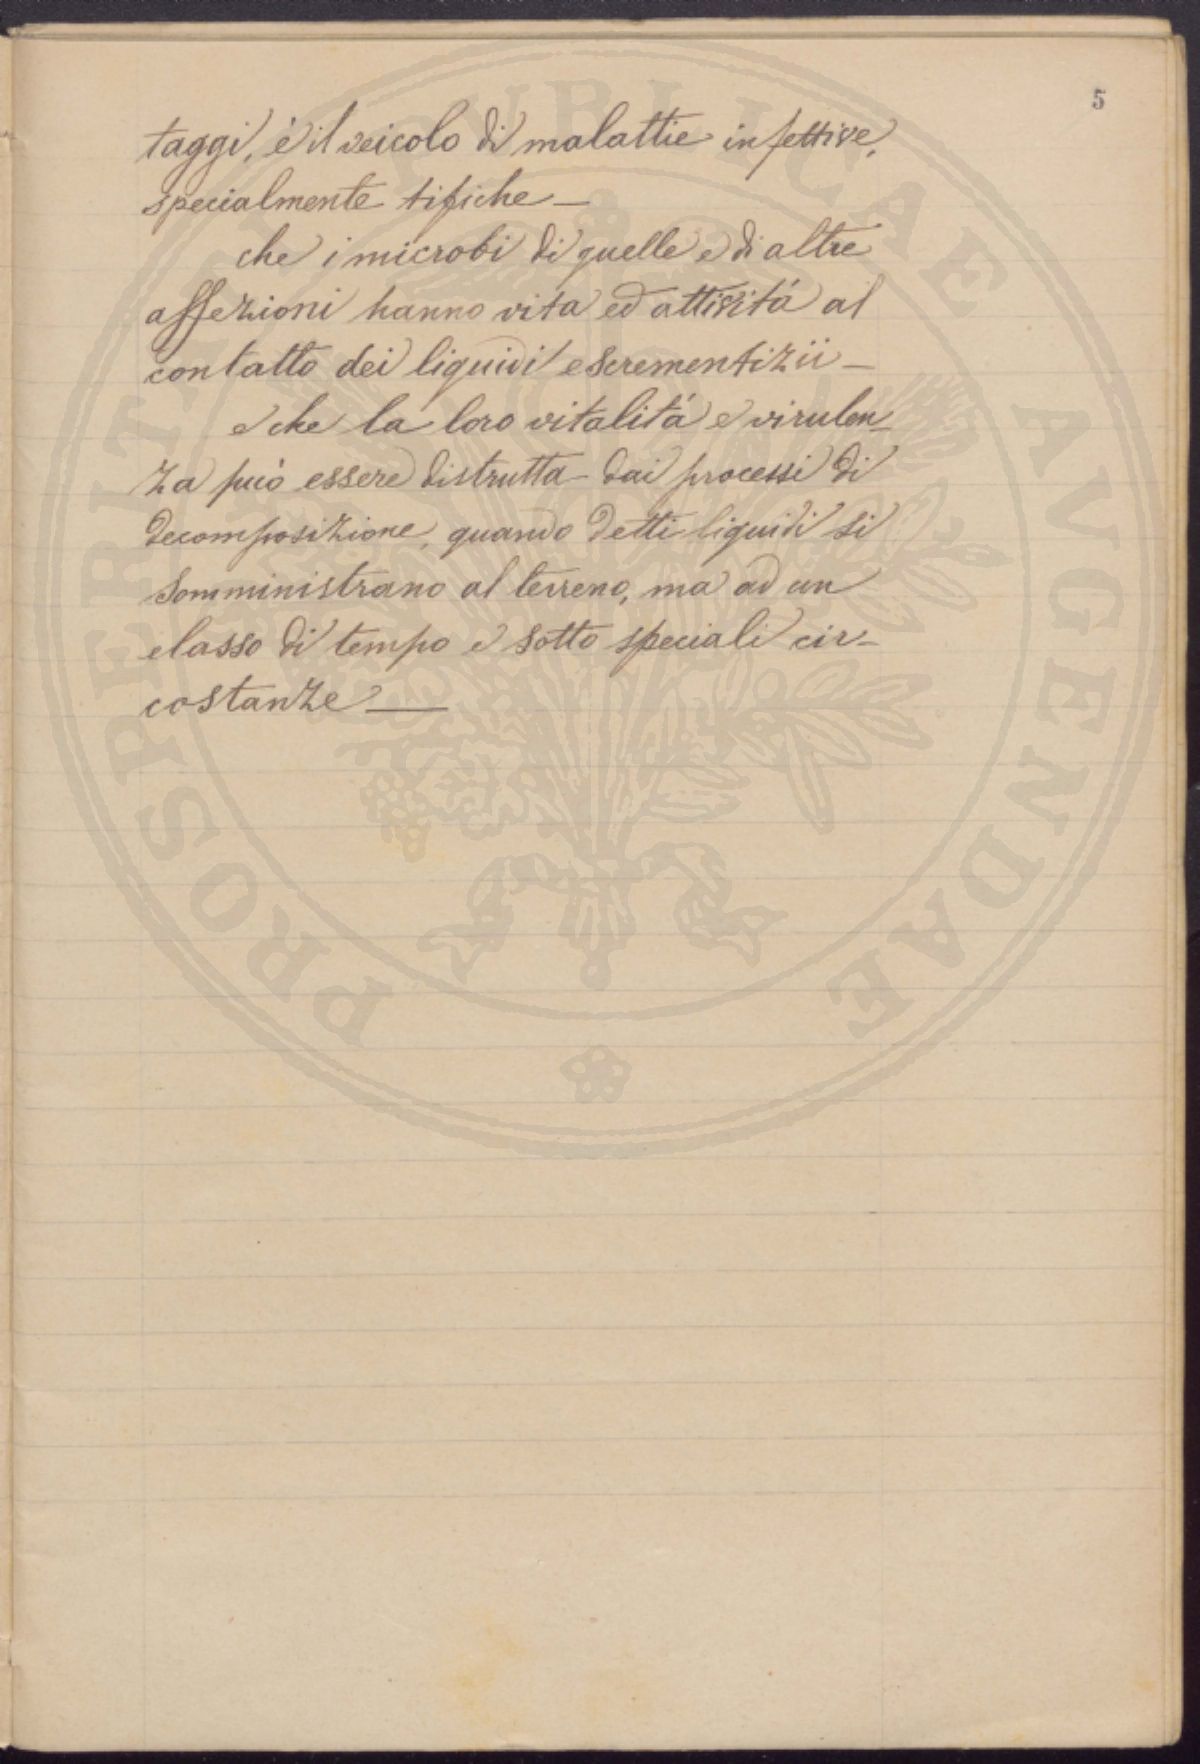 5
taggi, è il veicolo di malattie infettive,
specialmente tifiche —
che i microbi di quelle e di altre
affezioni hanno vita ed attività al
contatto dei liquidi escrementizii —
e che la loro vitalità e virulen-
za può essere distrutta dai processi di
decomposizione, quando detti liquidi si
somministrano al terreno, ma ad un
elasso di tempo e sotto speciali cir-
costanze —
PUBLICAE AVGENDAE PROSPERITATI